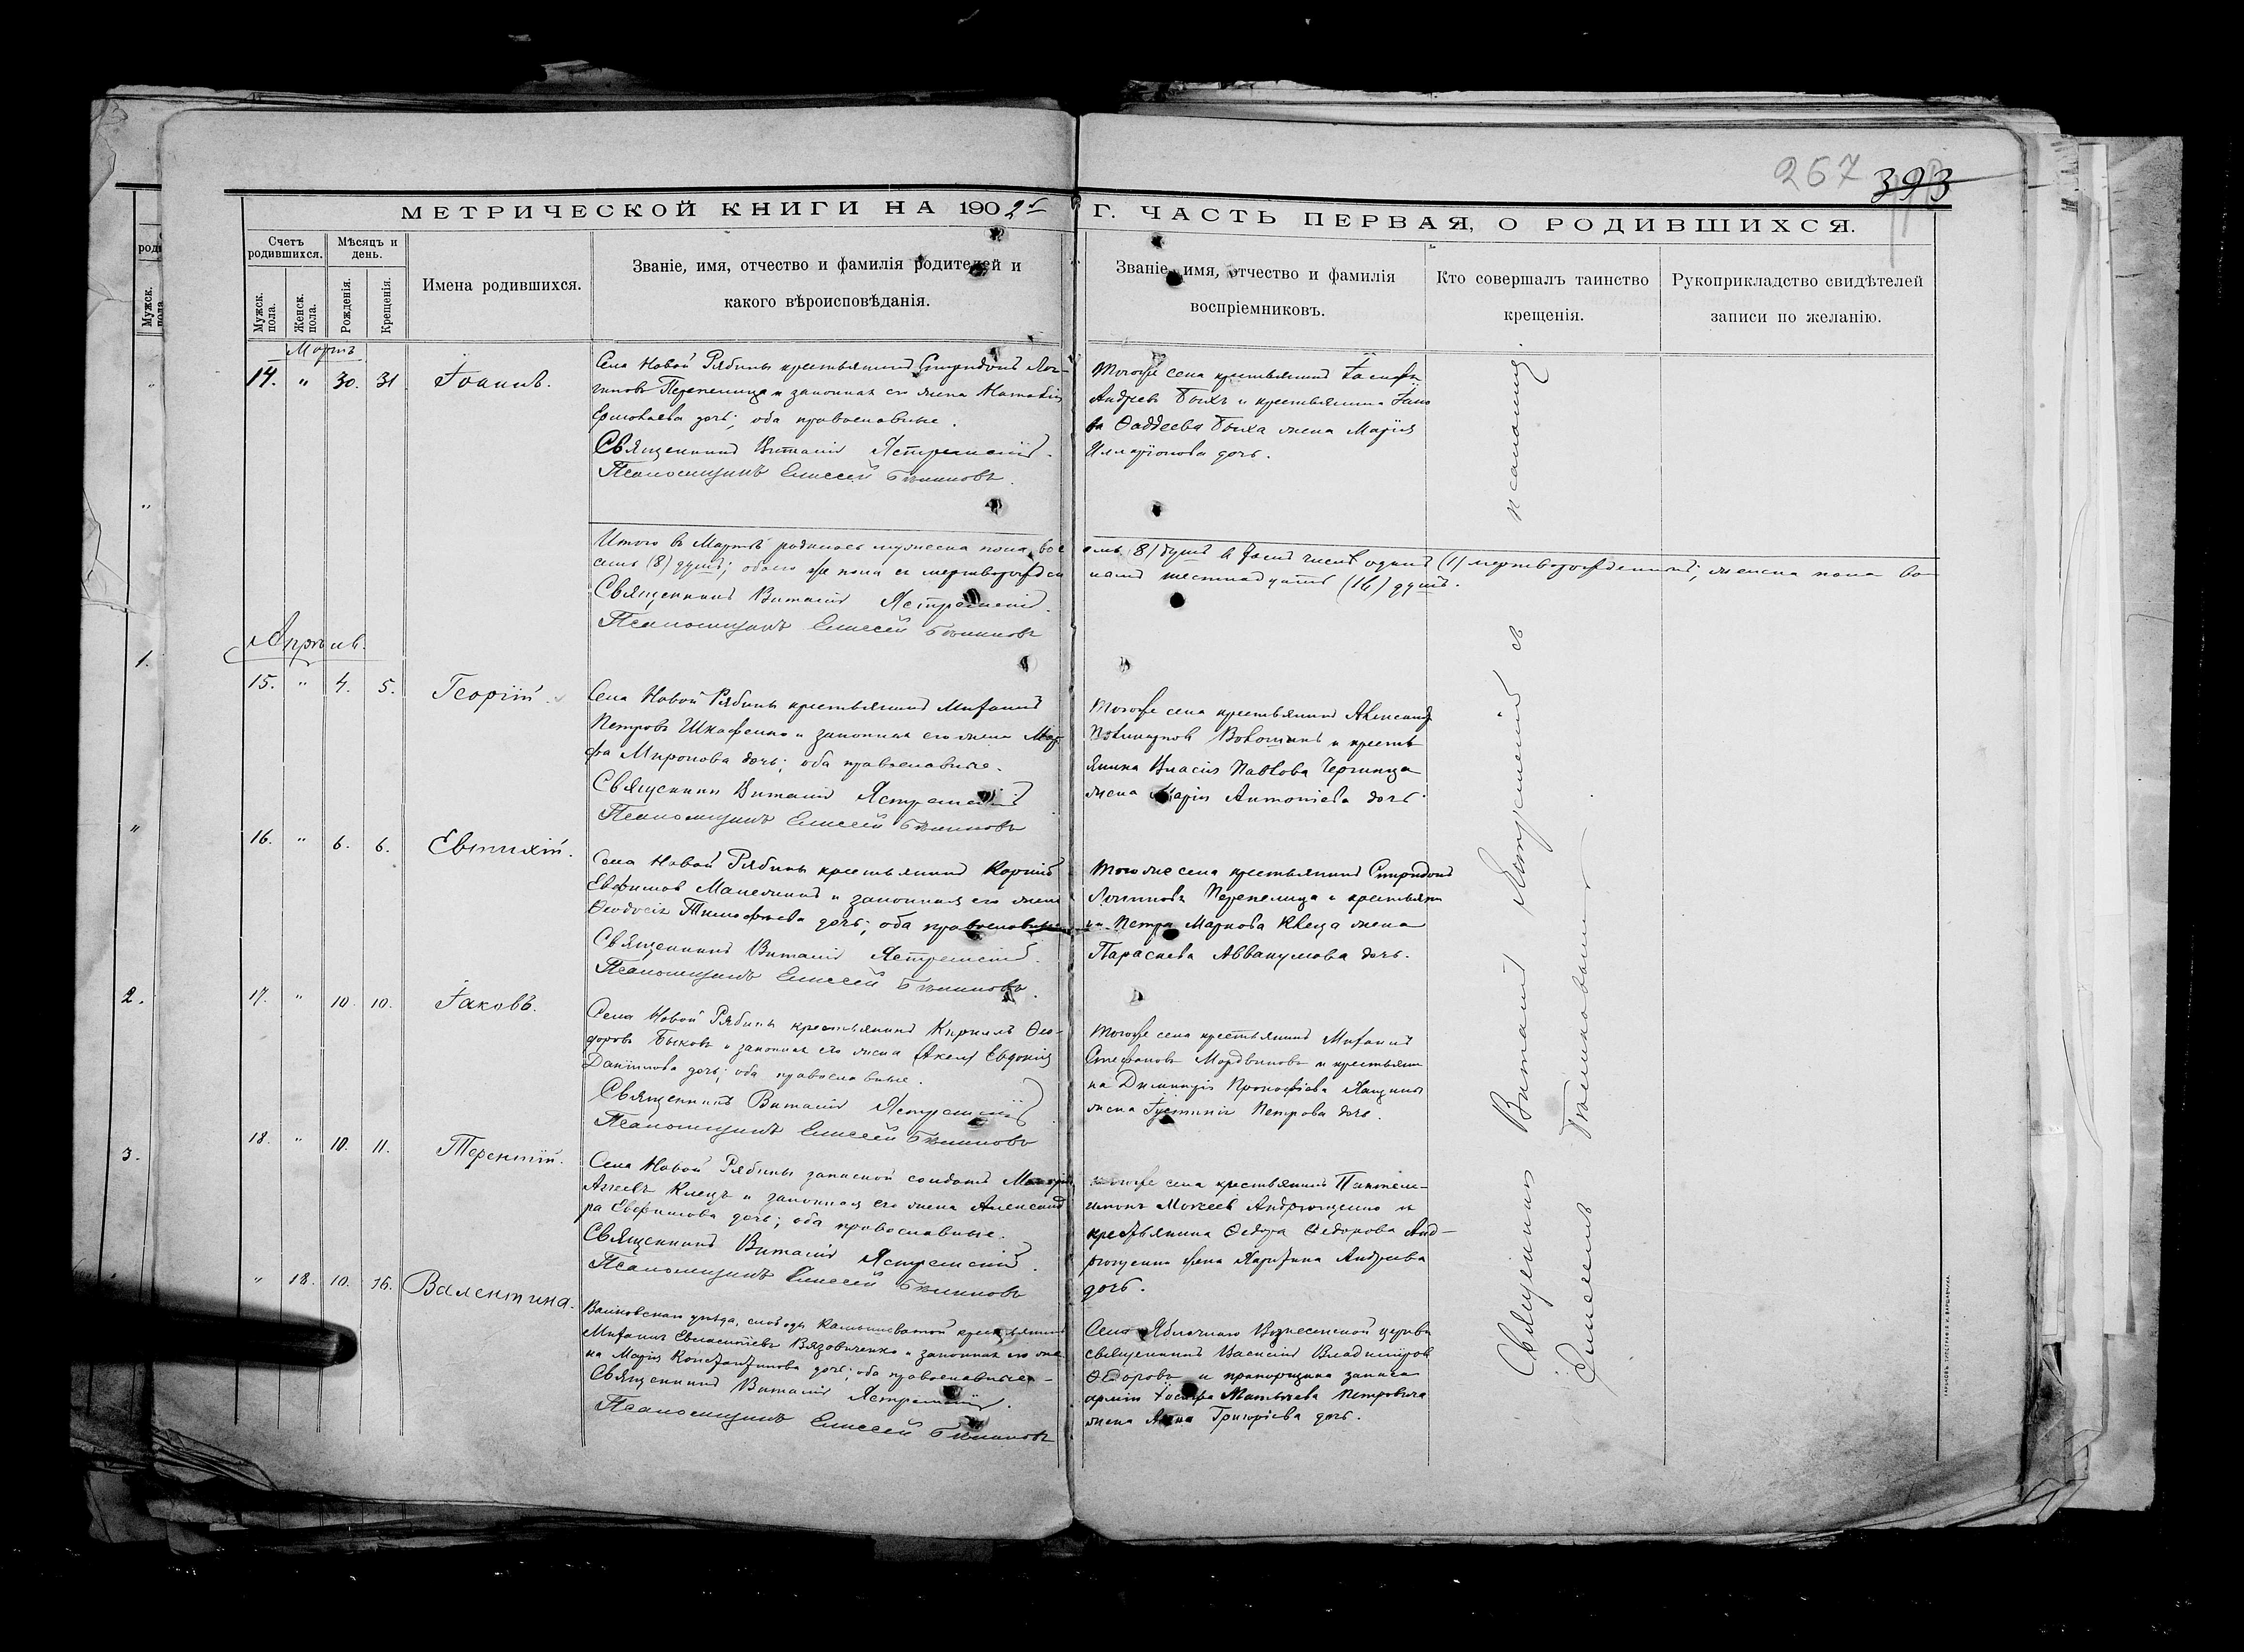 267 393
МЕТРИЧЕСКОЙ КНИГИ НА 1902 Г. ЧАСТЬ ПЕРВАЯ, О РОДИВШИХСЯ.
Счетъ родившихся.
Мѣсяцъ и день.
Мужск. пола.
Женск. пола.
Рожденія.
Крещенія.
Имена родившихся.
Званіе, имя, отчество и фамилія родителей и
какого вѣроисповѣданія.
Званіе, имя, отчество и фамилія
воспріемниковъ.
Кто совершалъ таинство
крещенія.
Рукоприкладство свидѣтелей
записи по желанію.
Мартъ
14. " 30. 31 Іоаннъ.
Села Новой Рябины крестьянинъ Спиридонъ Лон-
гиновъ Перепелица и законная его жена Наталія
дочь; оба православные.
Священникъ Виталій Ястремскій.
Псаломщикъ Елисей
Тогоже села крестьянинъ Іосифъ
Андреевъ Быхъ и крестьянина Іако
ва Ѳаддеева Быха жена Марія
Илларіонова дочь.
Итого въ Мартѣ родилось мужеска пола восемь (8) душъ и въ томъ числѣ одинъ (1) мертворожденный; женска пола во-
семь (8) душъ; обоего же пола съ мертворожденнымъ шестнадцать (16) душъ.
Священникъ Виталій Ястремскій.
Псаломщикъ Елисей
Апрѣль.
15. " 4. 5. Георгій.
Села Новой Рябины крестьянинъ Михаилъ
Петровъ и законная его жена Мар
фа Миронова дочь; оба православные.
Священникъ Виталій Ястремскій
Псаломщикъ Елисей
Тогоже села крестьянинъ Александръ
Волошинъ и кресть
янина Власія Павлова
жена Марія Антоніева дочь.
16. " 6. 6. Евтихій.
Села Новой Рябины крестьянинъ Корнилій
Евфимовъ и законная его жена
Ѳеодосія Тимофеева дочь; оба православные
Священникъ Виталій Ястремскій.
Псаломщикъ Елисей
Тогоже села крестьянинъ Спиридонъ
Логиновъ Перепелица и крестьяни
на Петра Маркова жена
Параскева Аввакумова дочь.
17. " 10. 10. Іаковъ.
Села Новой Рябины крестьянинъ Кириллъ Ѳео-
доровъ Быковъ и законная его жена Евдокія
Даніилова дочь; оба православные.
Священникъ Виталій Ястремскій
Псаломщикъ Елисей
Тогоже села крестьянинъ Михаилъ
Стефановъ Мордвиновъ и крестьяни
на Димитрія Прокофіева
жена Іустинія Петрова дочь.
18. " 10. 11. Терентій.
Села Новой Рябины запасной солдатъ
и законная его жена Александ
ра Евфимова дочь; оба православные.
Священникъ Виталій Ястремскій.
Псаломщикъ Елисей
Тогоже села крестьянинъ Пантеле-
имонъ Мокеевъ Андрющенко и
крестьянина Ѳедора Ѳедорова Анд-
рющенко жена Харитина Андреева
дочь.
" 18. 10. 16. Валентина.
Валковскаго уѣзда, слободы крестьянинъ
Михаилъ и законная его же
на Марія Константинова дочь; оба православные.
Священникъ Виталій Ястремскій.
Псаломщикъ Елисей
Села Яблочнаго Вознесенской церкви
священникъ Василій Владиміровъ
Ѳедоровъ и прапорщика запаса
арміи Матвѣева Петровича
жена Анна Григоріева дочь.
Священникъ Виталій Ястремскій съ псаломщ.
Елисеемъ
1.
2.
3.